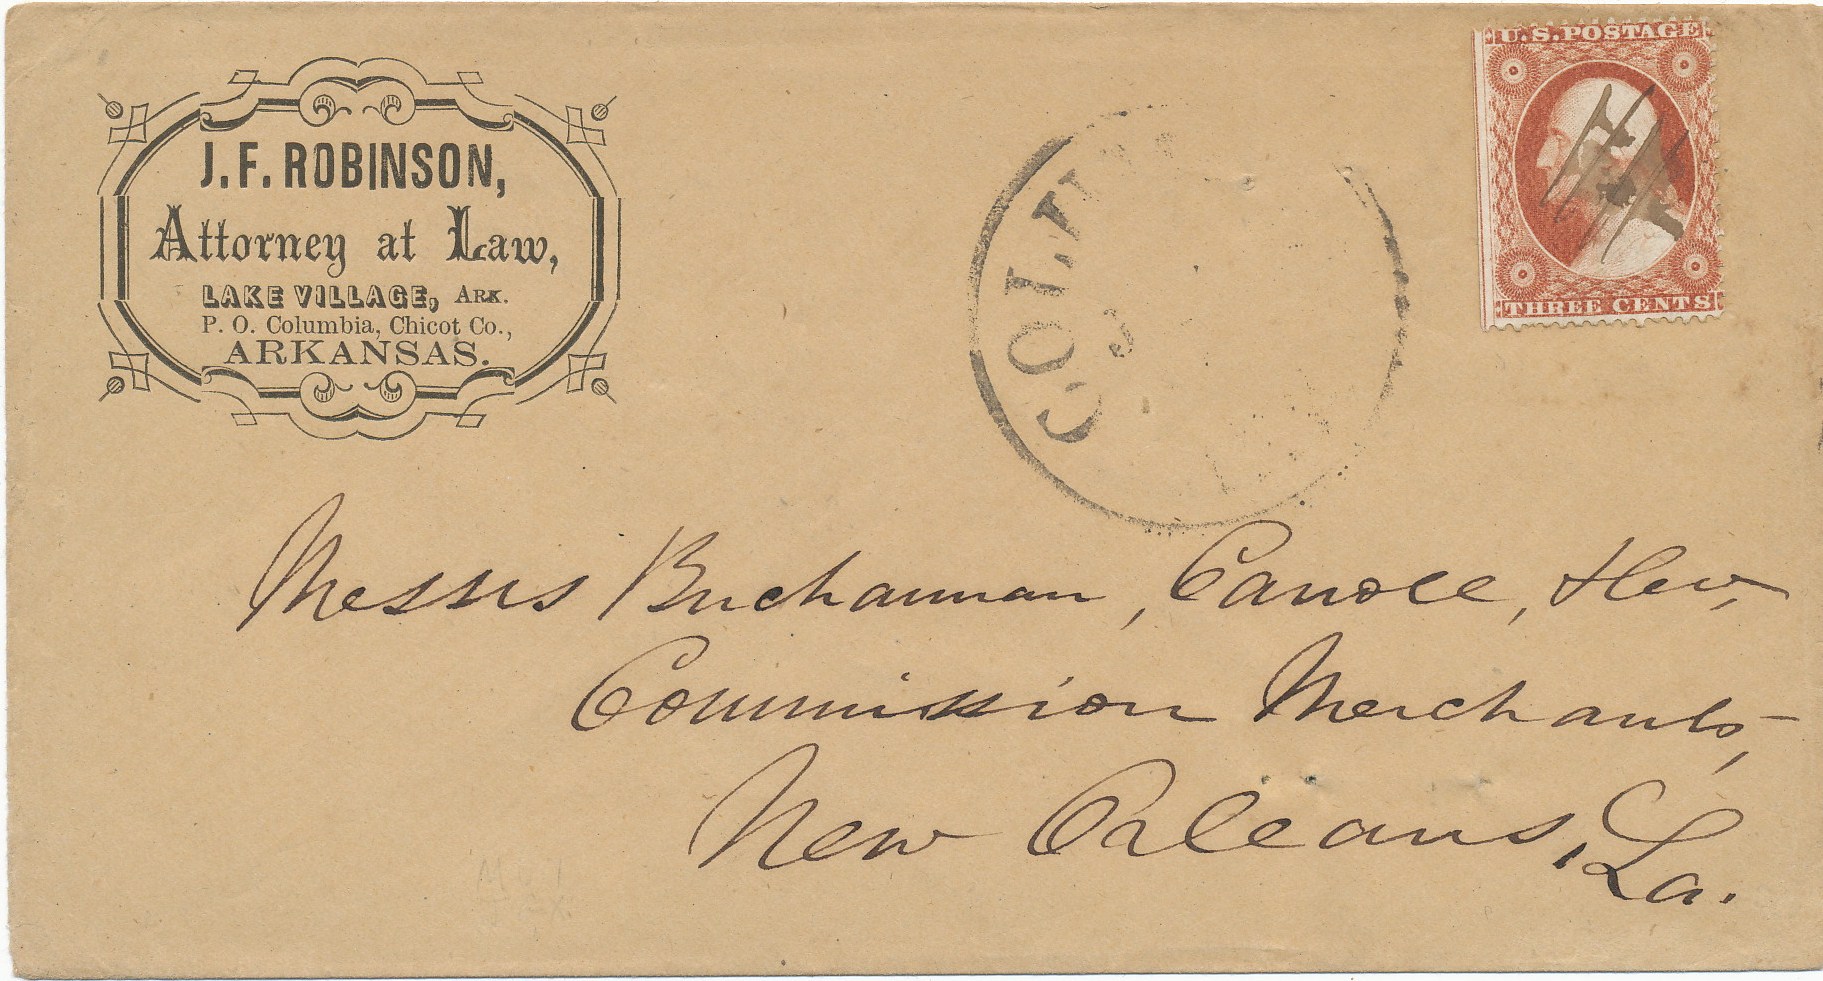 J. F. ROBINSON,
Attorney at Law,
LAKE VILLAGE, ARK.
P. O. Columbia, Chicot Co.,
ARKANSAS.
U.S. POSTAGE
THREE CENTS
COLU
Messrs Buchannan, Carroll, & Co,
Commission Merchants,
New Orleans, La.